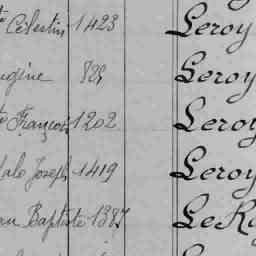 te Célestin 1423 Leroy
ugène 828 Leroy
te François 1202 Leroy
Malo Joseph 1419 Leroy
an Baptiste 1387 LeRo